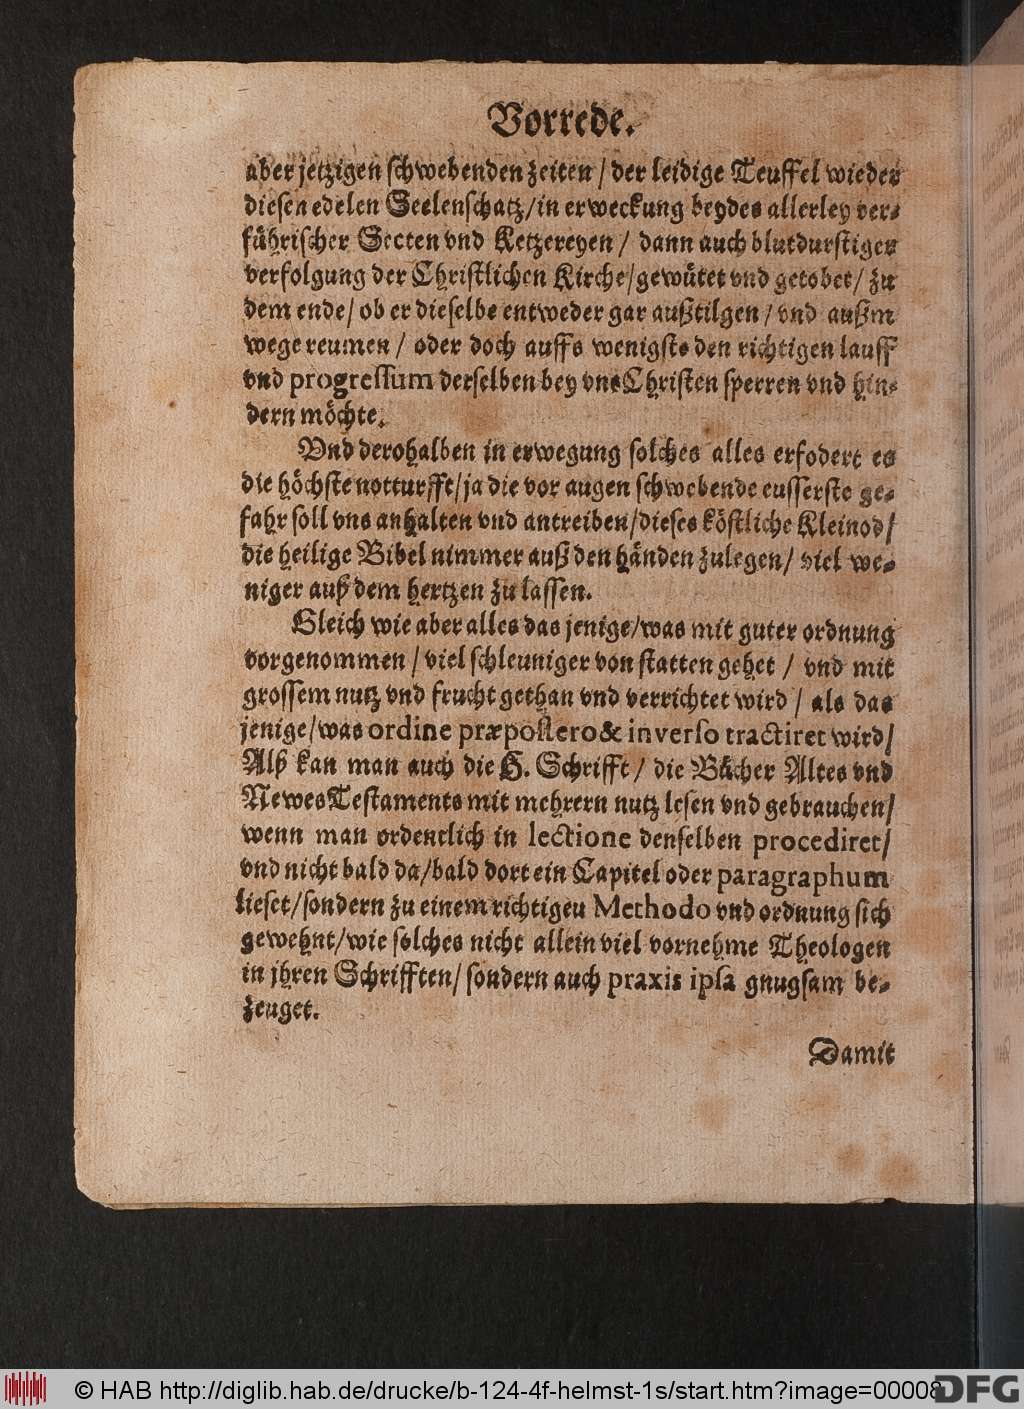 Vorrede.
aber jetzigen schwebenden zeiten / der leidige Teuffel wieder
diesen edelen Seelenschatz / in erweckung beydes allerley ver-
führischer Secten vnd Ketzereyen / dann auch blutdurstiger
verfolgung der Christlichen Kirche / gewütet vnd getobet / zu
dem ende / ob er dieselbe entweder gar außtilgen / vnd außm
wege reumen / oder doch auffs wenigste den richtigen lauff
vnd progressum derselben bey vns Christen sperren vnd hin-
dern möchte.
Vnd derohalben in erwegung solches alles erfodert es
die höchste notturfft / ja die vor augen schwebende eusserste ge-
fahr soll vns anhalten vnd antreiben / dieses köstliche Kleinod /
die heilige Bibel nimmer auß den händen zulegen / viel we-
niger auß dem hertzen zu lassen.
Gleich wie aber alles das jenige / was mit guter ordnung
vorgenommen / viel schleuniger von statten gehet / vnd mit
grossem nutz vnd frucht gethan vnd verrichtet wird / als das
jenige / was ordine præpostero & inverso tractiret wird /
Alß kan man auch die H. Schrifft / die Bücher Altes vnd
Newes Testaments mit mehrern nutz lesen vnd gebrauchen /
wenn man ordentlich in lectione denselben procediret /
vnd nicht bald da / bald dort ein Capitel oder paragraphum
lieset / sondern zu einem richtigeu Methodo vnd ordnung sich
gewehnt / wie solches nicht allein viel vornehme Theologen
in jhren Schrifften / sondern auch praxis ipsa gnugsam be-
zeuget.
Damit
© HAB http://diglib.hab.de/drucke/b-124-4f-helmst-1s/start.htm?image=00008
DFG